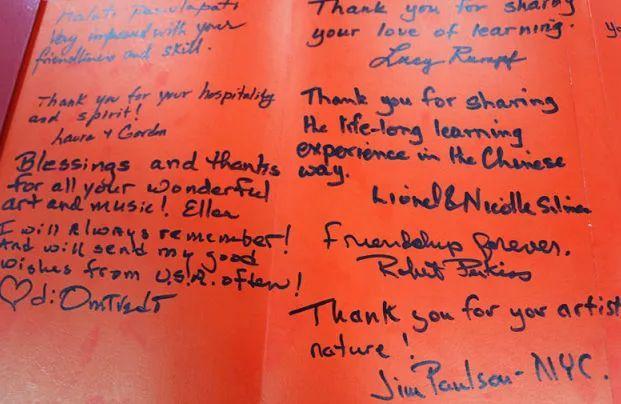 Malati
Very impressed with your
friendliness and skill.
Thank you for your hospitality
and spirit!
Laura + Gordon
Blessings and thanks
for all your wonderful
art and music! Ellen
I will always remember!
And will send my good
wishes from U.S.A. often!
♡ di:
Thank you for sharing
your love of learning.
Lucy Rumpf
Thank you for sharing
the life-long learning
experience in the Chinese
way.
Lionel & Nicolle
Friendship forever.
Robert Perkins
Thank you for your artist
nature!
Jim Paulson - NYC.